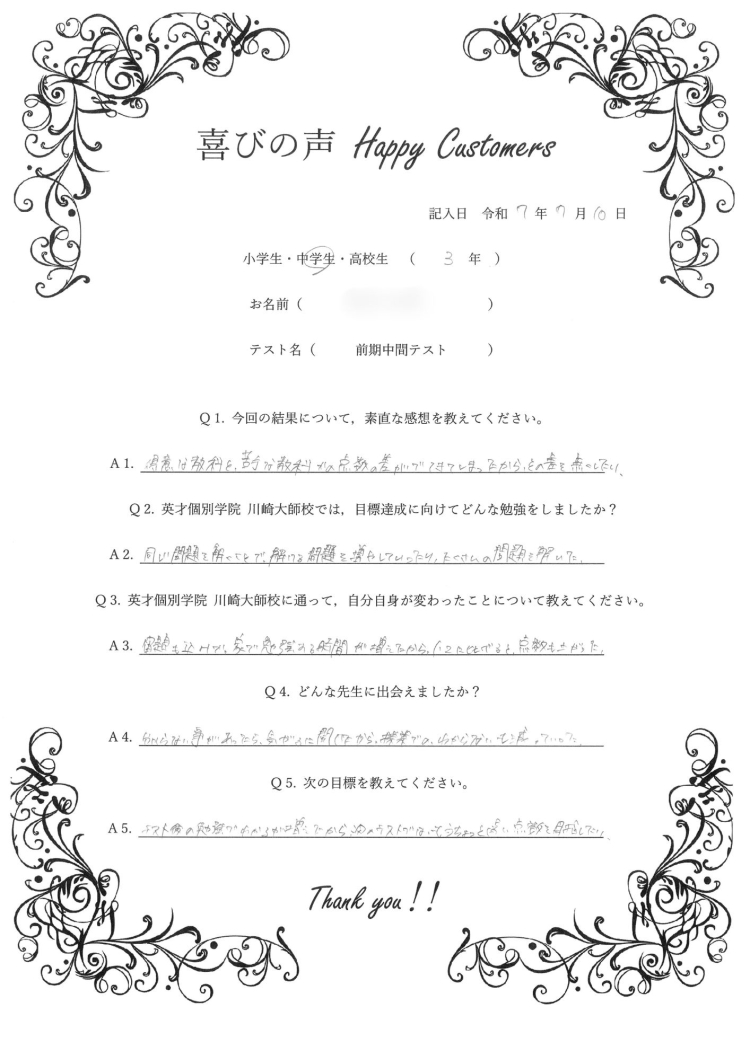 喜びの声 Happy Customers
記入日 令和 7 年 7 月 10 日
小学生・中学生・高校生 ( 3 年 )
お名前 ( )
テスト名 ( 前期中間テスト )
Q 1. 今回の結果について，素直な感想を教えてください。
A 1. 得意な教科と、苦手な教科での点数の差ができてしまったから、その差を無くしたい。
Q 2. 英才個別学院 川崎大師校では，目標達成に向けてどんな勉強をしましたか？
A 2. 同じ問題を解くことで、解ける問題を増やしていったり、たくさんの問題を解いた。
Q 3. 英才個別学院 川崎大師校に通って，自分自身が変わったことについて教えてください。
A 3. 宿題も込みで、家で勉強する時間が増えたから、1,2年と比べると、点数も上がった。
Q 4. どんな先生に出会えましたか？
A 4. 分からない事があったら、気がるに聞けたから、授業での、分からないも減っていった。
Q 5. 次の目標を教えてください。
A 5. テスト後の勉強で から次のテストではもうちょっと高い点数を目指したい。
Thank you !!